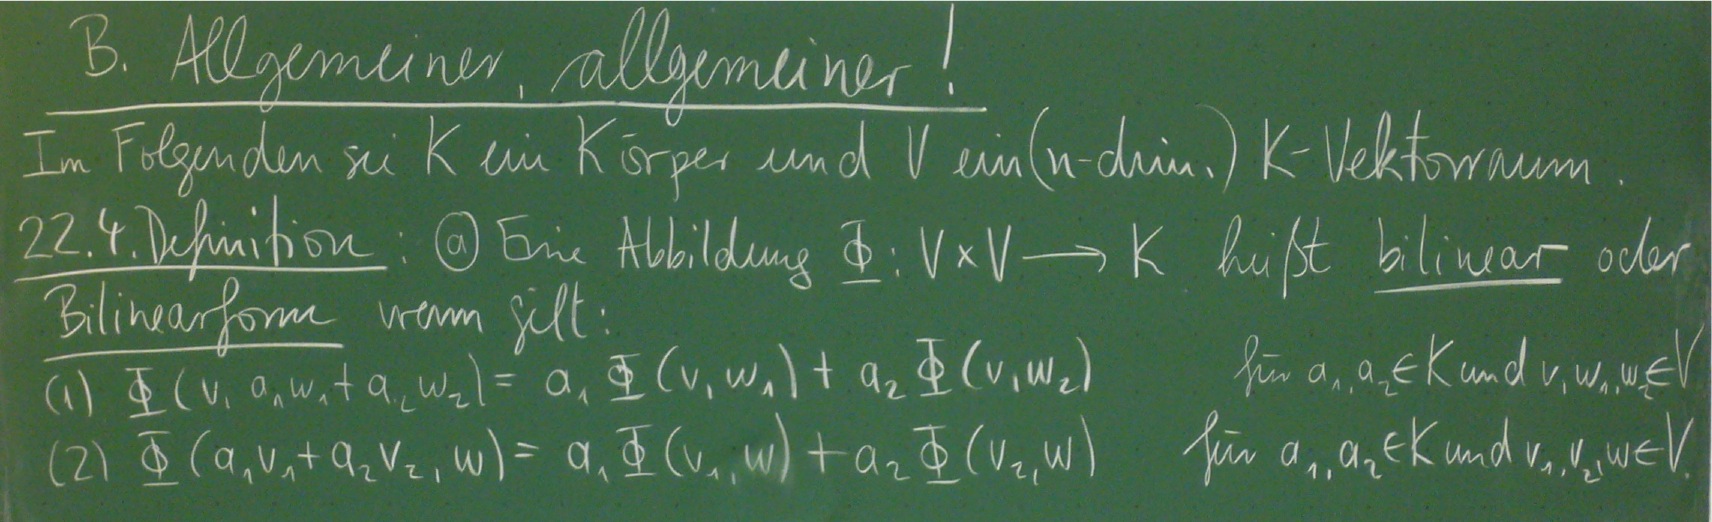 B. Allgemeiner, allgemeiner!
Im Folgenden sei K ein Körper und V ein (n-dim.) K-Vektorraum.
22.4. Definition: ⓐ Eine Abbildung Φ: V×V ⟶ K heißt bilinear oder
Bilinearform wenn gilt:
(1) Φ(v, a₁w₁+a₂w₂) = a₁Φ(v,w₁) + a₂Φ(v,w₂) für a₁,a₂∈K und v,w₁,w₂∈V
(2) Φ(a₁v₁+a₂v₂,w) = a₁Φ(v₁,w) + a₂Φ(v₂,w) für a₁,a₂∈K und v₁,v₂,w∈V.